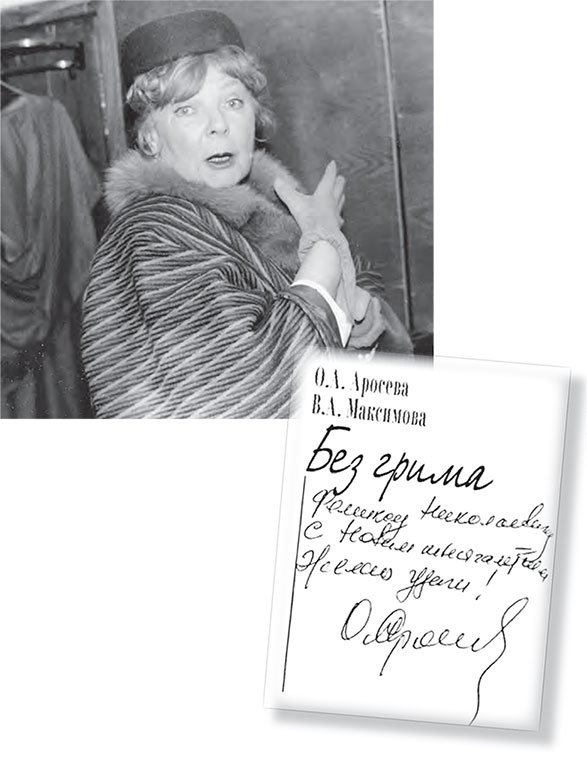 О.А. Аросева
В.А. Максимова
Без грима
Феликсу Николаевичу
С Новым
Желаю удачи!
О. Аросева